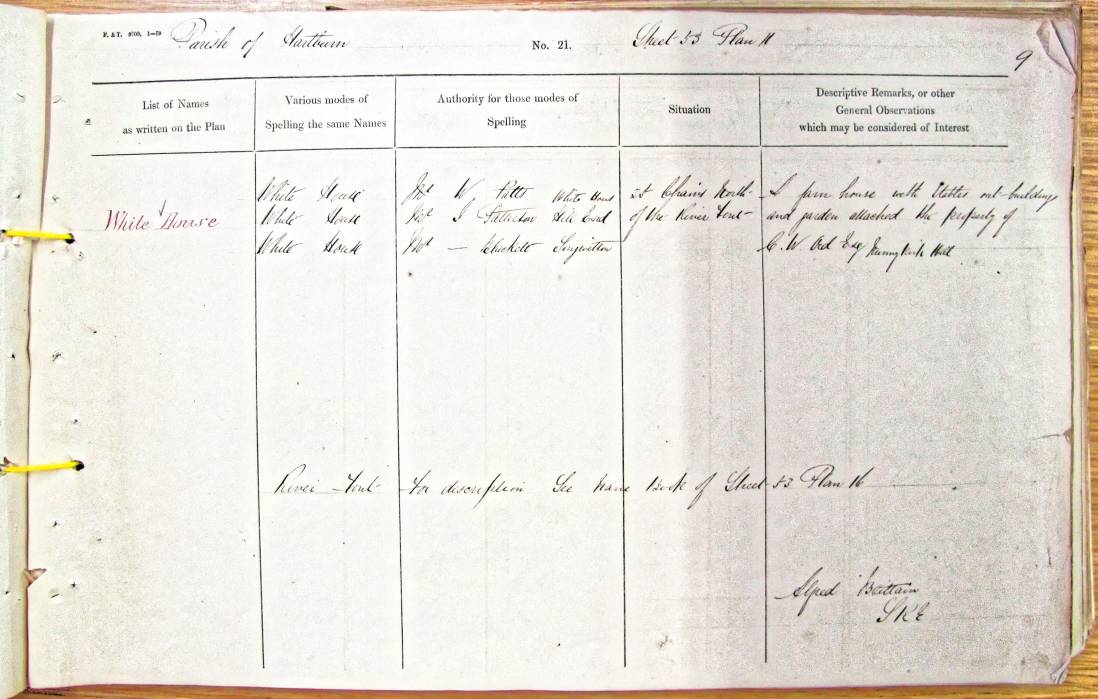 F. & T. 5000. 1—59 Parish of Hartburn No. 21. Sheet 53 Plan 11
9
List of Names
as written on the Plan
Various modes of
Spelling the same Names
Authority for those modes of
Spelling
Situation
Descriptive Remarks, or other
General Observations
which may be considered of Interest
White House
White House
White House
White House
Mr W Potts White House
Mr J Patterson Hill End
Mr — Longwitton
Chains North
of the River Font
A farm house with stables out-buildings
and garden attached the property of
C. W. Ord Esq Nunnykirk Hall
River Font For description See Name Book of Sheet 53 Plan 16
Alfred Brittain